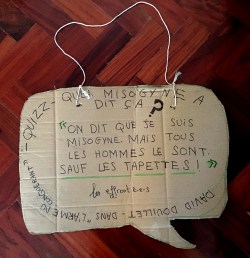 -QUIZZ- QUEL MISOGYNE A
DIT ÇA ?
"ON DIT QUE JE SUIS
MISOGYNE. MAIS TOUS
LES HOMMES LE SONT.
SAUF LES TAPETTES ! "
les effronté-e-s
DAVID DOUILLET - DANS "L'ÂME
DU CONQUÉRANT"